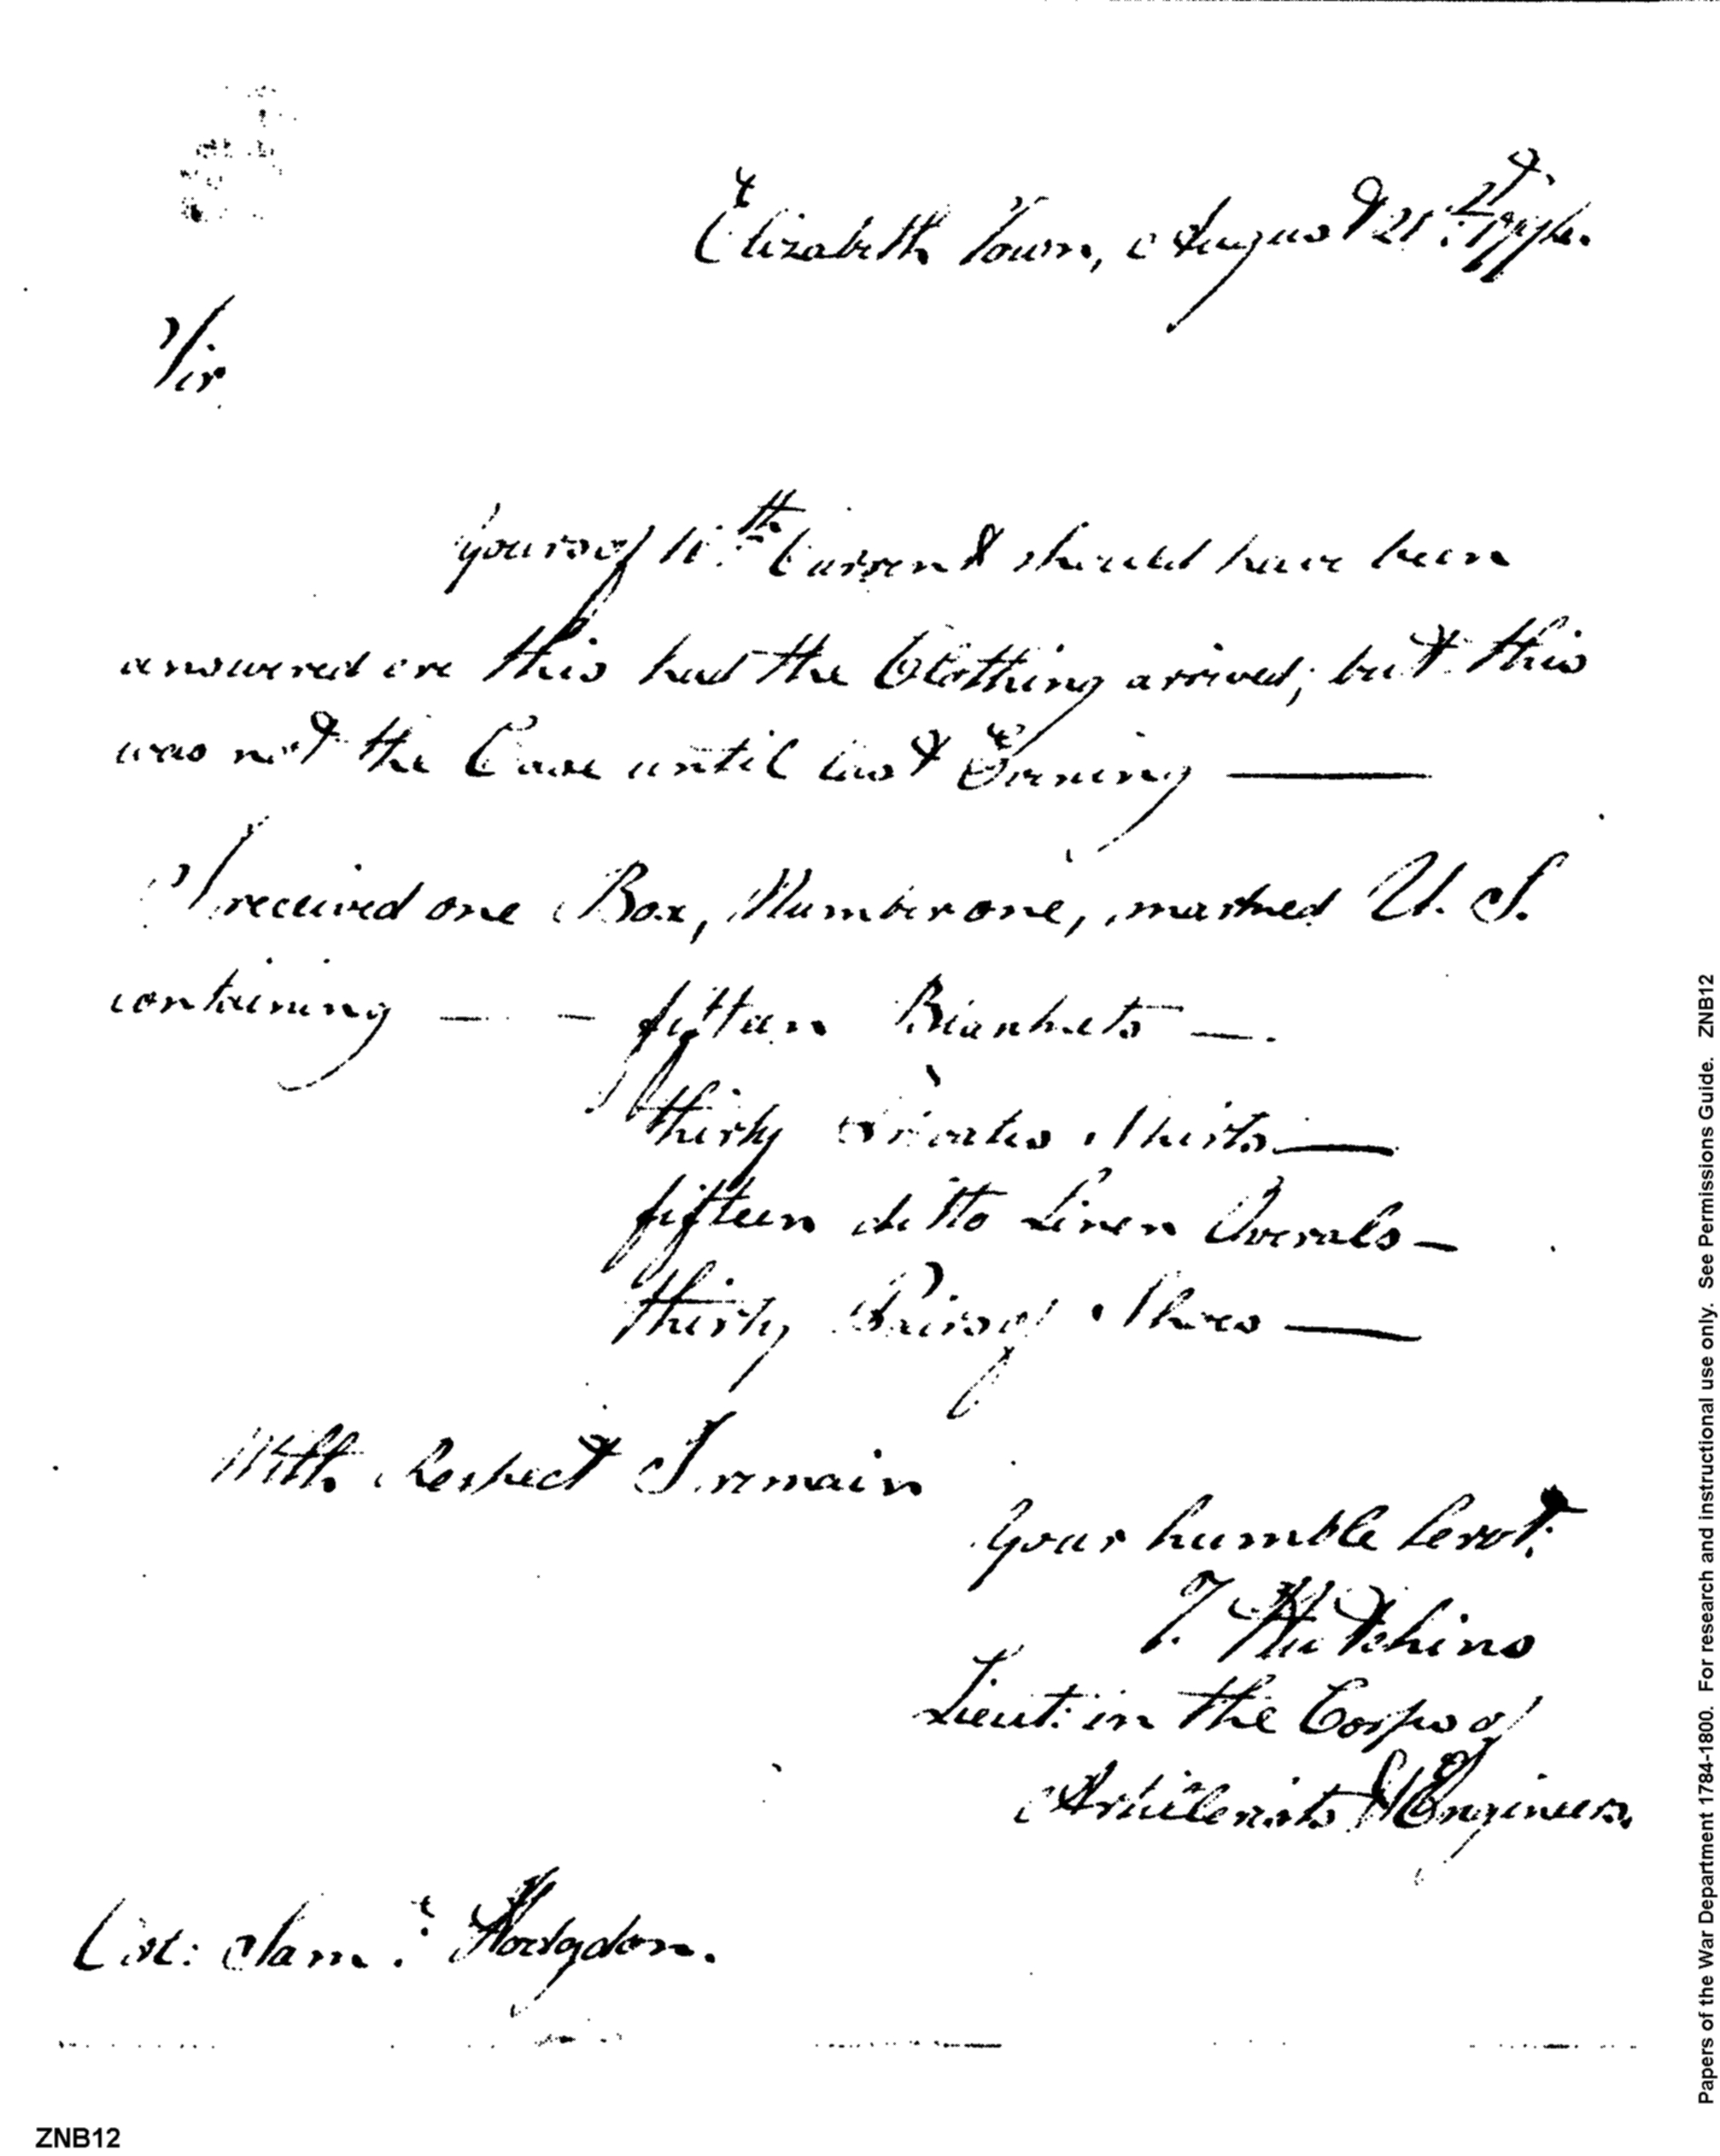 Elizabeth Town, August 21.st 1794.
Sir
Yours of 10.th Current should have been
answered ere this had the Clothing arrived; but this
was not the Case until last Evening —
I received one Box, Number one, marked U. S.
containing — — fifteen Blankets —
thirty Privates Shirts —
fifteen ditto Linen Overals —
thirty Pairs of Shoes —
With Respect I remain
Your humble Servt.
T. Hutchins
Lieut: in the Corps of
Artillerists & Engineers.
Col: Sam.l Hodgdon.
ZNB12
Papers of the War Department 1784-1800. For research and instructional use only. See Permissions Guide. ZNB12